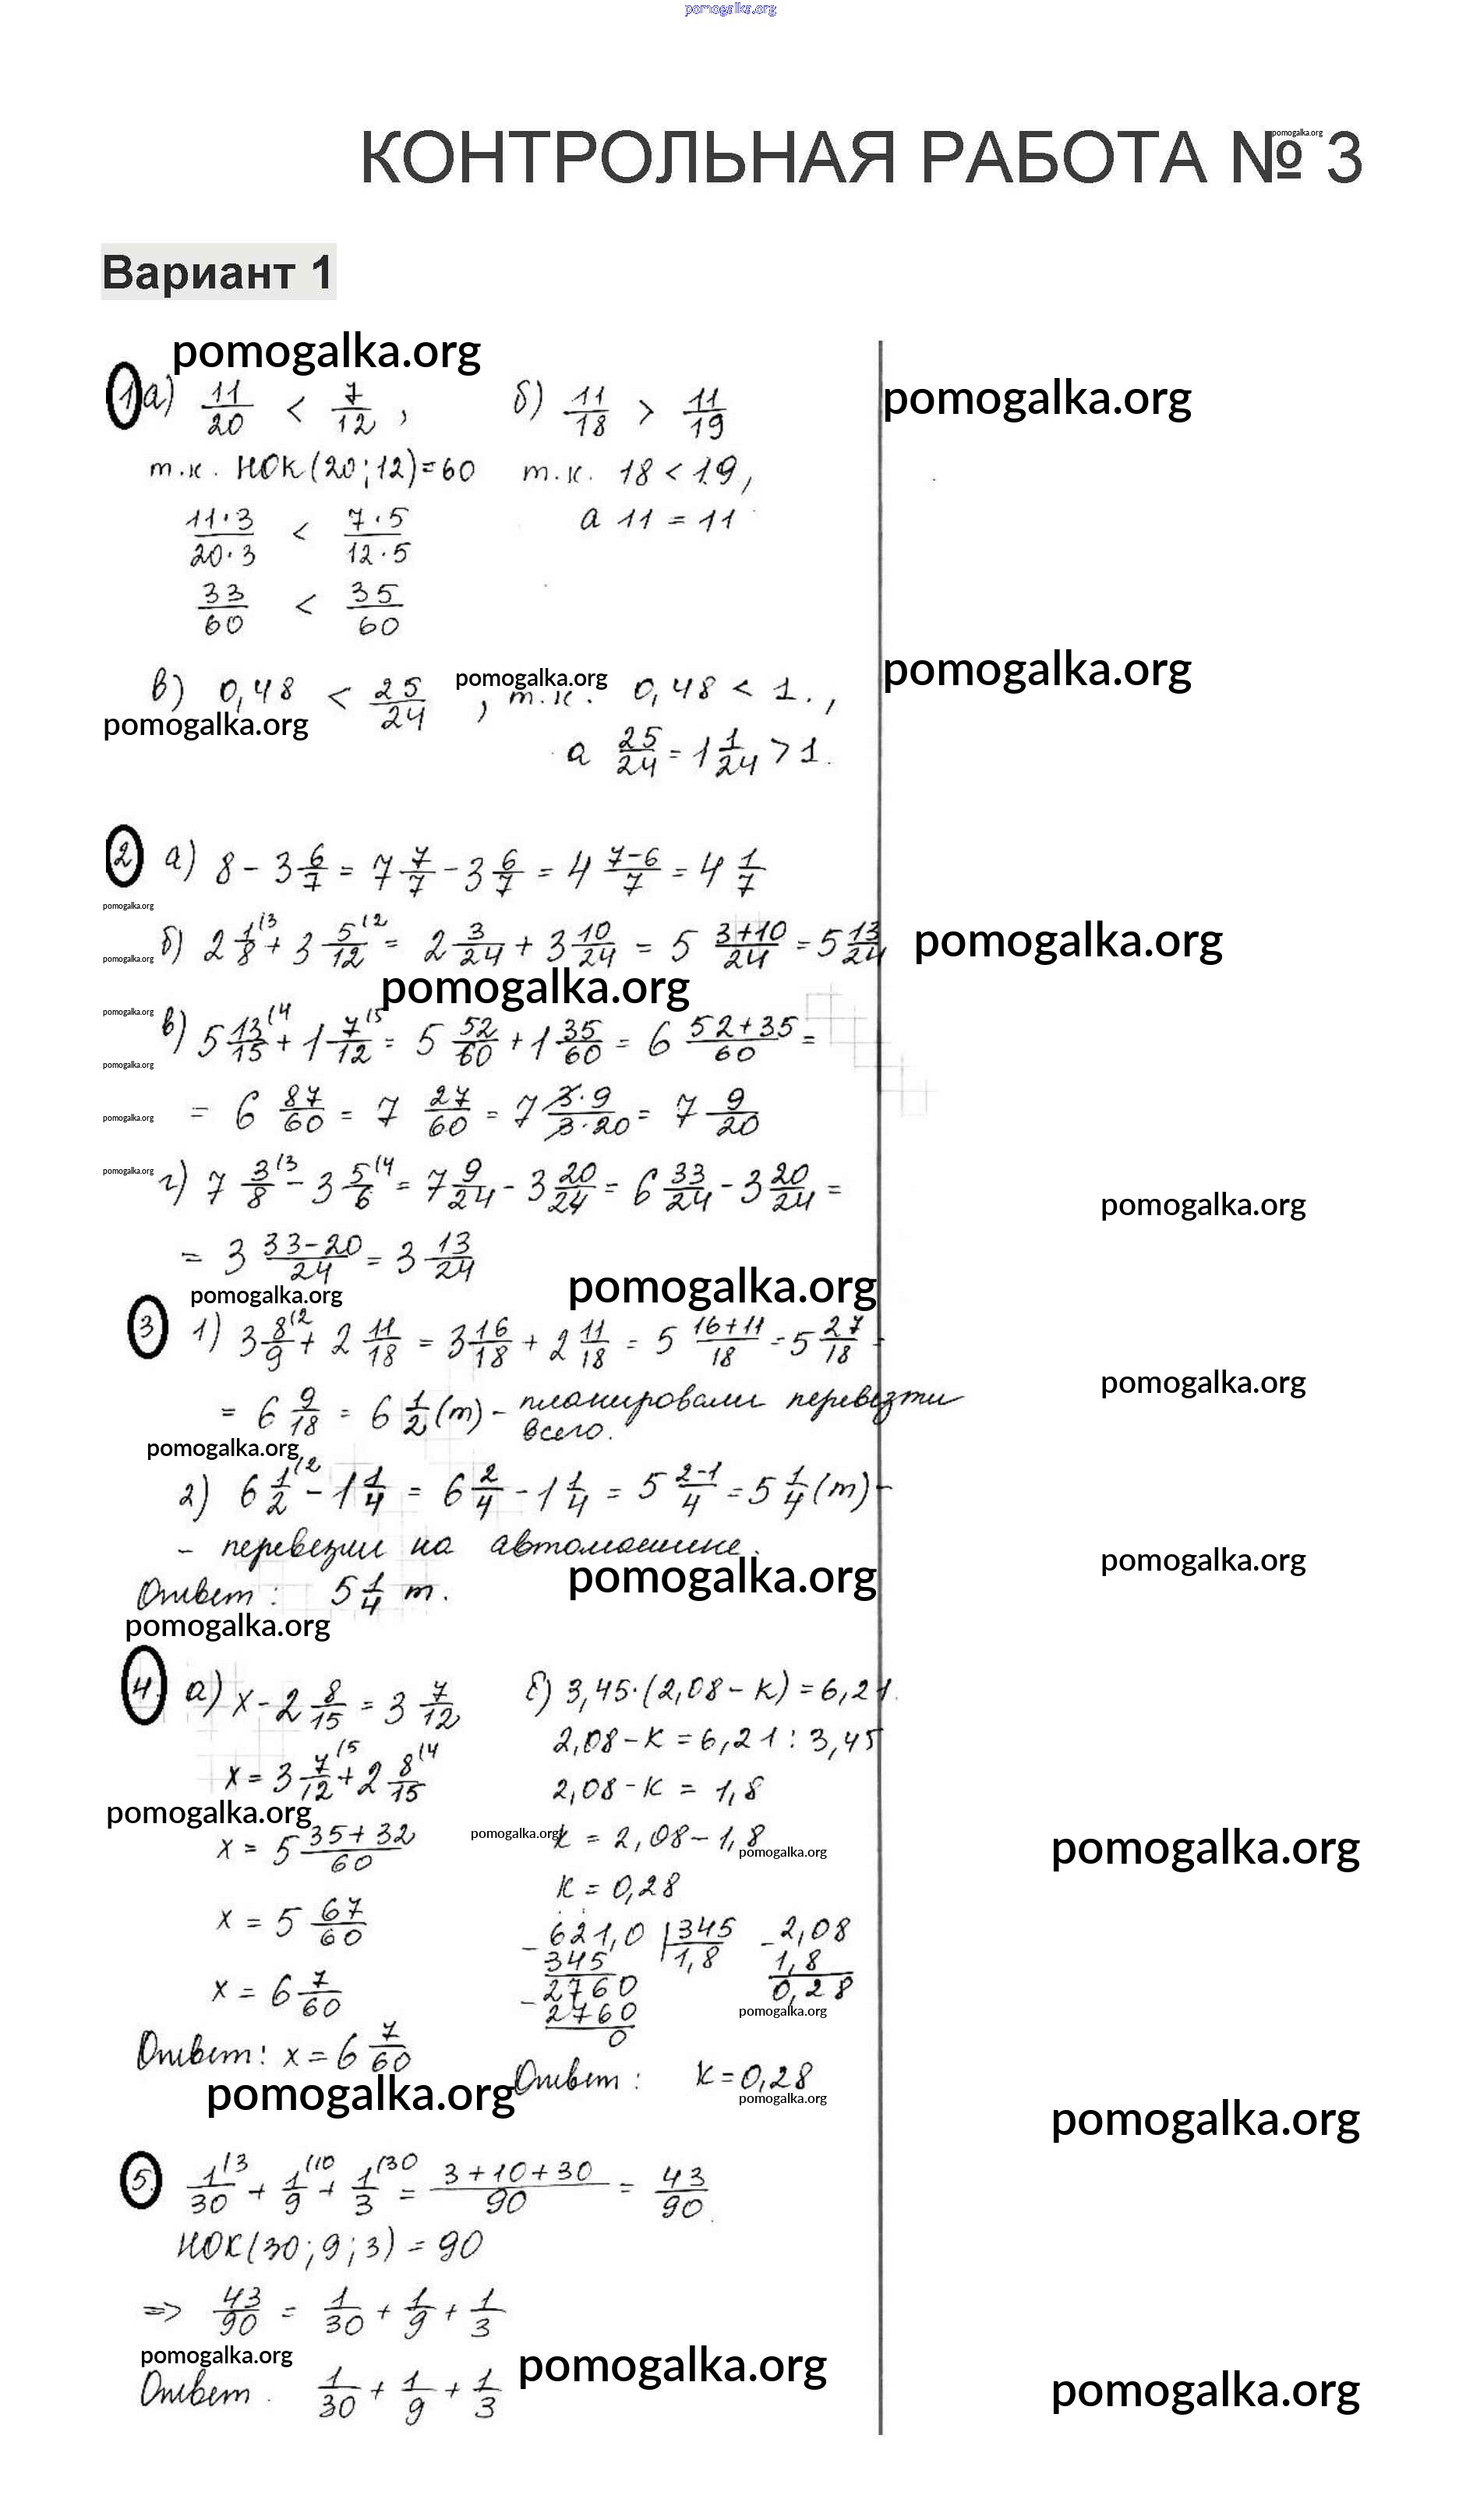 pomogalka.org
КОНТРОЛЬНАЯ РАБОТА № 3
pomogalka.org
Вариант 1
pomogalka.org
1 а) 11/20 < 7/12 , б) 11/18 > 11/19
pomogalka.org
т.к. НОК(20;12)=60 т.к. 18 < 19,
11·3/20·3 < 7·5/12·5 а 11 = 11
33/60 < 35/60
pomogalka.org
в) 0,48 < 25/24 , т.к. 0,48 < 1.,
pomogalka.org
pomogalka.org
а 25/24 = 1 1/24 > 1.
2 а) 8 - 3 6/7 = 7 7/7 - 3 6/7 = 4 7-6/7 = 4 1/7
pomogalka.org
б) 2 1/8 (3 + 3 5/12 (2 = 2 3/24 + 3 10/24 = 5 3+10/24 = 5 13/24
pomogalka.org
pomogalka.org
pomogalka.org
pomogalka.org
в) 5 13/15 (4 + 1 7/12 (5 = 5 52/60 + 1 35/60 = 6 52+35/60 =
pomogalka.org
= 6 87/60 = 7 27/60 = 7 3·9/3·20 = 7 9/20
pomogalka.org
pomogalka.org
г) 7 3/8 (3 - 3 5/6 (4 = 7 9/24 - 3 20/24 = 6 33/24 - 3 20/24 =
pomogalka.org
= 3 33-20/24 = 3 13/24
pomogalka.org
pomogalka.org
3 1) 3 8/9 (2 + 2 11/18 = 3 16/18 + 2 11/18 = 5 16+11/18 = 5 27/18 =
pomogalka.org
= 6 9/18 = 6 1/2 (т) - планировали перевезти
всего.
pomogalka.org
2) 6 1/2 (2 - 1 1/4 = 6 2/4 - 1 1/4 = 5 2-1/4 = 5 1/4 (т) -
- перевезли на автомашине.
pomogalka.org
pomogalka.org
Ответ: 5 1/4 т.
pomogalka.org
4 а) x - 2 8/15 = 3 7/12 б) 3,45·(2,08 - к) = 6,21.
x = 3 7/12 (5 + 2 8/15 (4 2,08 - к = 6,21 : 3,45
2,08 - к = 1,8
pomogalka.org
x = 5 35+32/60 к = 2,08 - 1,8
pomogalka.org
pomogalka.org
pomogalka.org
к = 0,28
x = 5 67/60 - 621,0 345 - 2,08
345 1,8 1,8
x = 6 7/60 - 2760 0,28
2760
pomogalka.org
0
Ответ: x = 6 7/60 Ответ: к = 0,28
pomogalka.org
pomogalka.org
pomogalka.org
5. 1/30 (3 + 1/9 (10 + 1/3 (30 = 3+10+30/90 = 43/90
НОК(30;9;3) = 90
=> 43/90 = 1/30 + 1/9 + 1/3
pomogalka.org
pomogalka.org
pomogalka.org
Ответ. 1/30 + 1/9 + 1/3